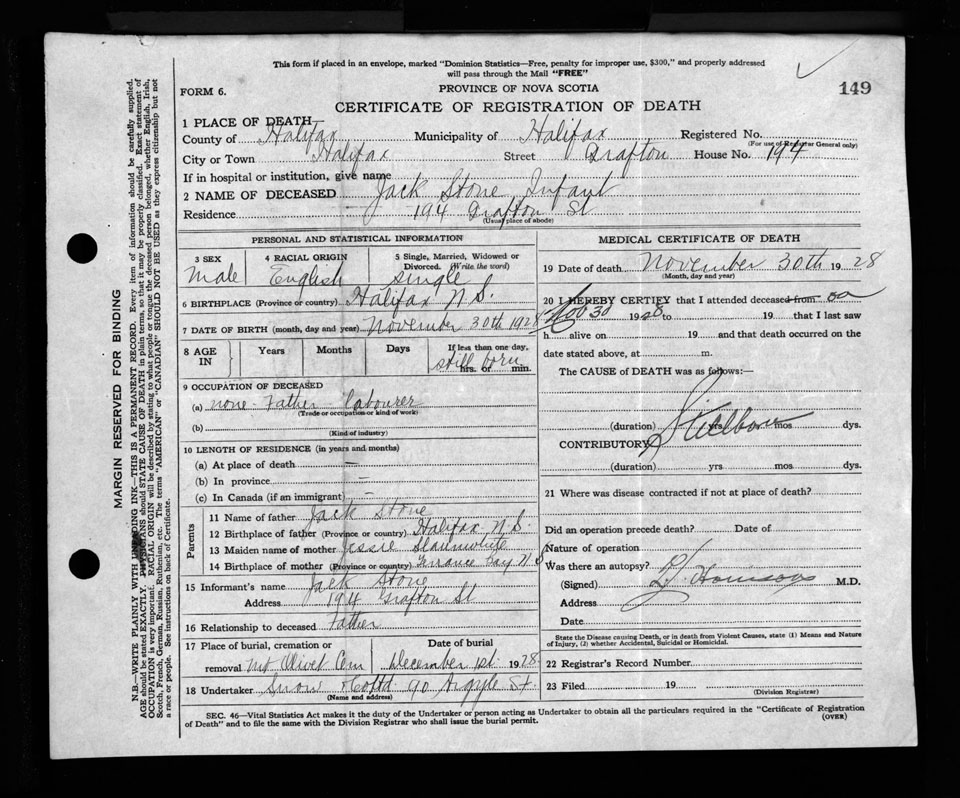 This form if placed in an envelope, marked "Dominion Statistics—Free, penalty for improper use, $300," and properly addressed
will pass through the Mail "FREE"
FORM 6.
PROVINCE OF NOVA SCOTIA
149
CERTIFICATE OF REGISTRATION OF DEATH
1 PLACE OF DEATH
County of Halifax Municipality of Halifax Registered No.
(For use of Registrar General only)
City or Town Halifax Street Grafton House No. 194
If in hospital or institution, give name
2 NAME OF DECEASED Jack Stone Infant
Residence 194 Grafton St
(Usual place of abode)
PERSONAL AND STATISTICAL INFORMATION
3 SEX 4 RACIAL ORIGIN 5 Single, Married, Widowed or
Divorced. (Write the word)
Male English Single
6 BIRTHPLACE (Province or country) Halifax N.S.
7 DATE OF BIRTH (month, day and year) November 30th 1928
8 AGE IN Years Months Days If less than one day,
still born
hrs. or min.
9 OCCUPATION OF DECEASED
(a) none - Father - labourer
(Trade or occupation or kind of work)
(b)
(Kind of industry)
10 LENGTH OF RESIDENCE (in years and months)
(a) At place of death —
(b) In province —
(c) In Canada (if an immigrant) —
Parents
11 Name of father Jack Stone
12 Birthplace of father (Province or country) Halifax N.S.
13 Maiden name of mother Jessie Slaunwhite
14 Birthplace of mother (Province or country) Terrance Bay N.S
15 Informant's name Jack Stone
Address 194 Grafton St
16 Relationship to deceased Father
17 Place of burial, cremation or Date of burial
removal Mt Olivet Cem December 1st 1928
18 Undertaker Snow & Co Ltd 90 Argyle St.
(Name and address)
MEDICAL CERTIFICATE OF DEATH
19 Date of death November 30th 1928
(Month, day and year)
20 I HEREBY CERTIFY that I attended deceased from on
Nov 30 1928 to 19 that I last saw
h alive on 19 and that death occurred on the
date stated above, at m.
The CAUSE of DEATH was as follows:—
Stillborn
(duration) yrs. mos dys.
CONTRIBUTORY
(duration) yrs mos dys.
21 Where was disease contracted if not at place of death?
Did an operation precede death? Date of
Nature of operation
Was there an autopsy?
(Signed) M.D.
Address
Date
State the Disease causing Death, or in death from Violent Causes, state (1) Means and Nature
of Injury, (2) whether Accidental, Suicidal or Homicidal.
22 Registrar's Record Number
23 Filed 19
(Division Registrar)
SEC. 46—Vital Statistics Act makes it the duty of the Undertaker or person acting as Undertaker to obtain all the particulars required in the "Certificate of Registration
of Death" and to file the same with the Division Registrar who shall issue the burial permit.
(OVER)
MARGIN RESERVED FOR BINDING
N.B.—WRITE PLAINLY WITH UNFADING INK—THIS IS A PERMANENT RECORD. Every item of information should be carefully supplied.
AGE should be stated EXACTLY. PHYSICIANS should STATE CAUSE OF DEATH in plain terms, so that it may be properly classified. Exact statement of
OCCUPATION is very important. RACIAL ORIGIN will be described by stating to what people or tongue the deceased person belonged, whether English, Irish,
Scotch, French, German, Russian, Ruthenian, etc. The terms "AMERICAN" or "CANADIAN" SHOULD NOT BE USED as they express citizenship but not
a race or people. See instructions on back of Certificate.